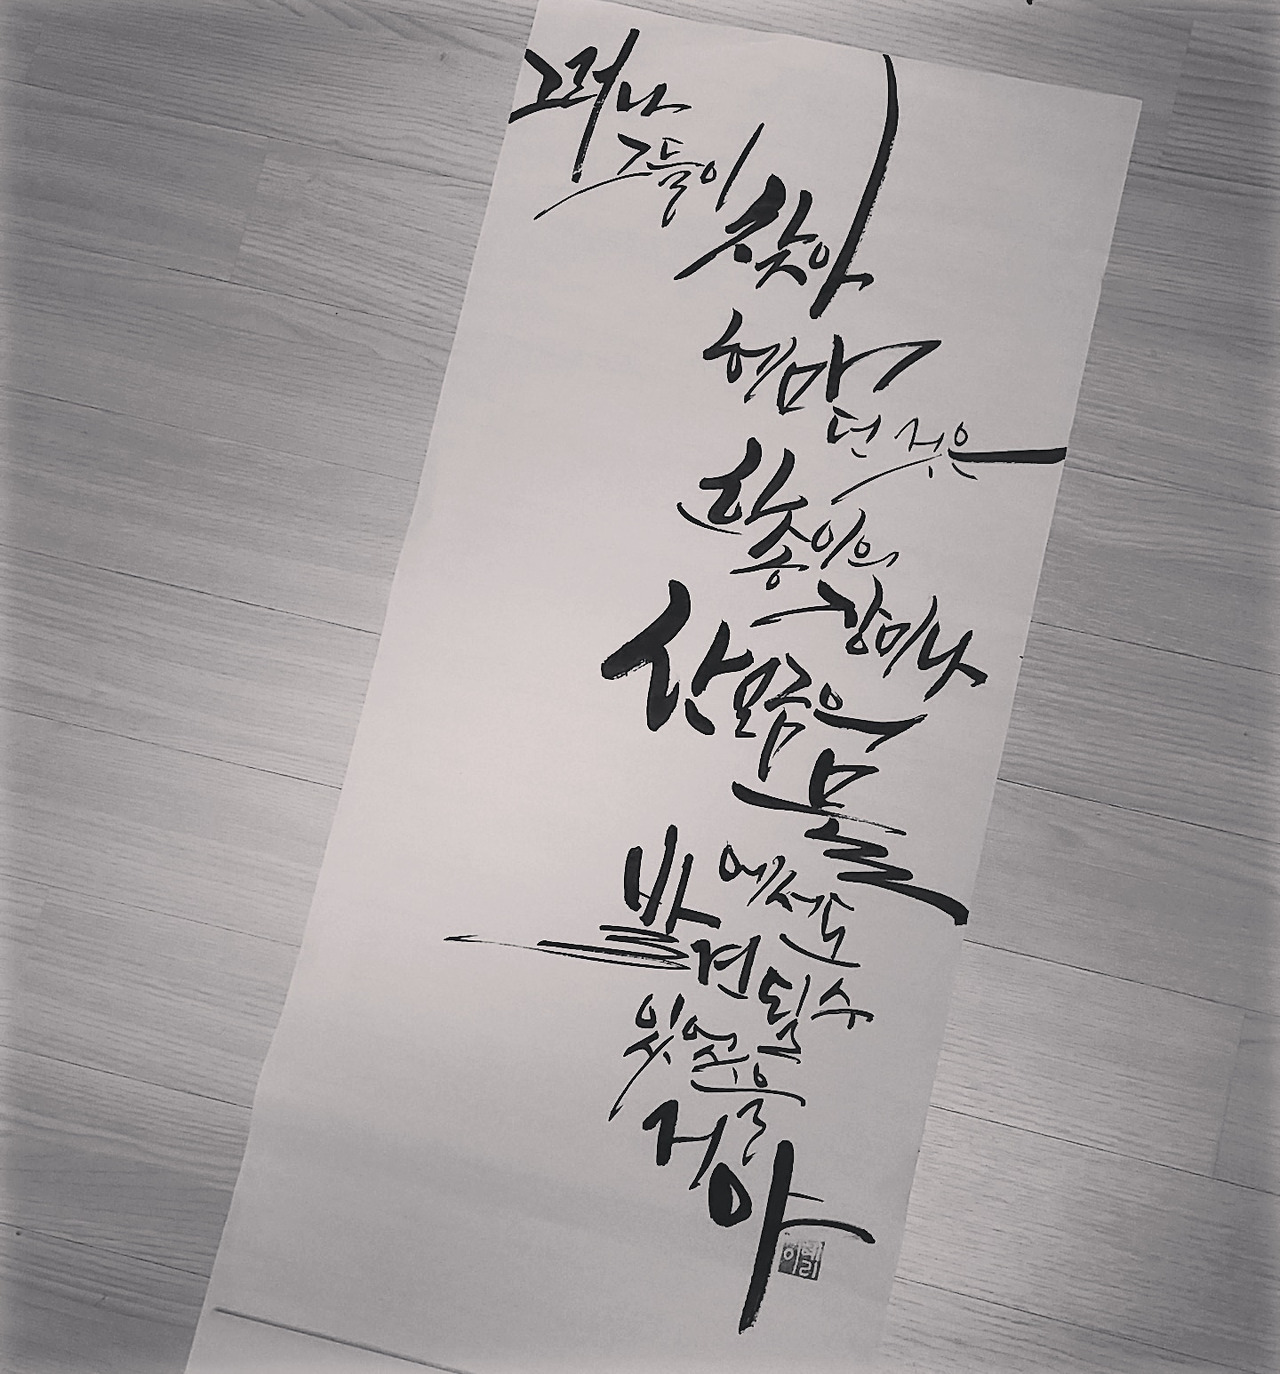 그러나
그들이
찾아
헤마
던 것은
한송이의
장미나
한모금은
물
에서도
발견될 수
있었을
거야
이혜리